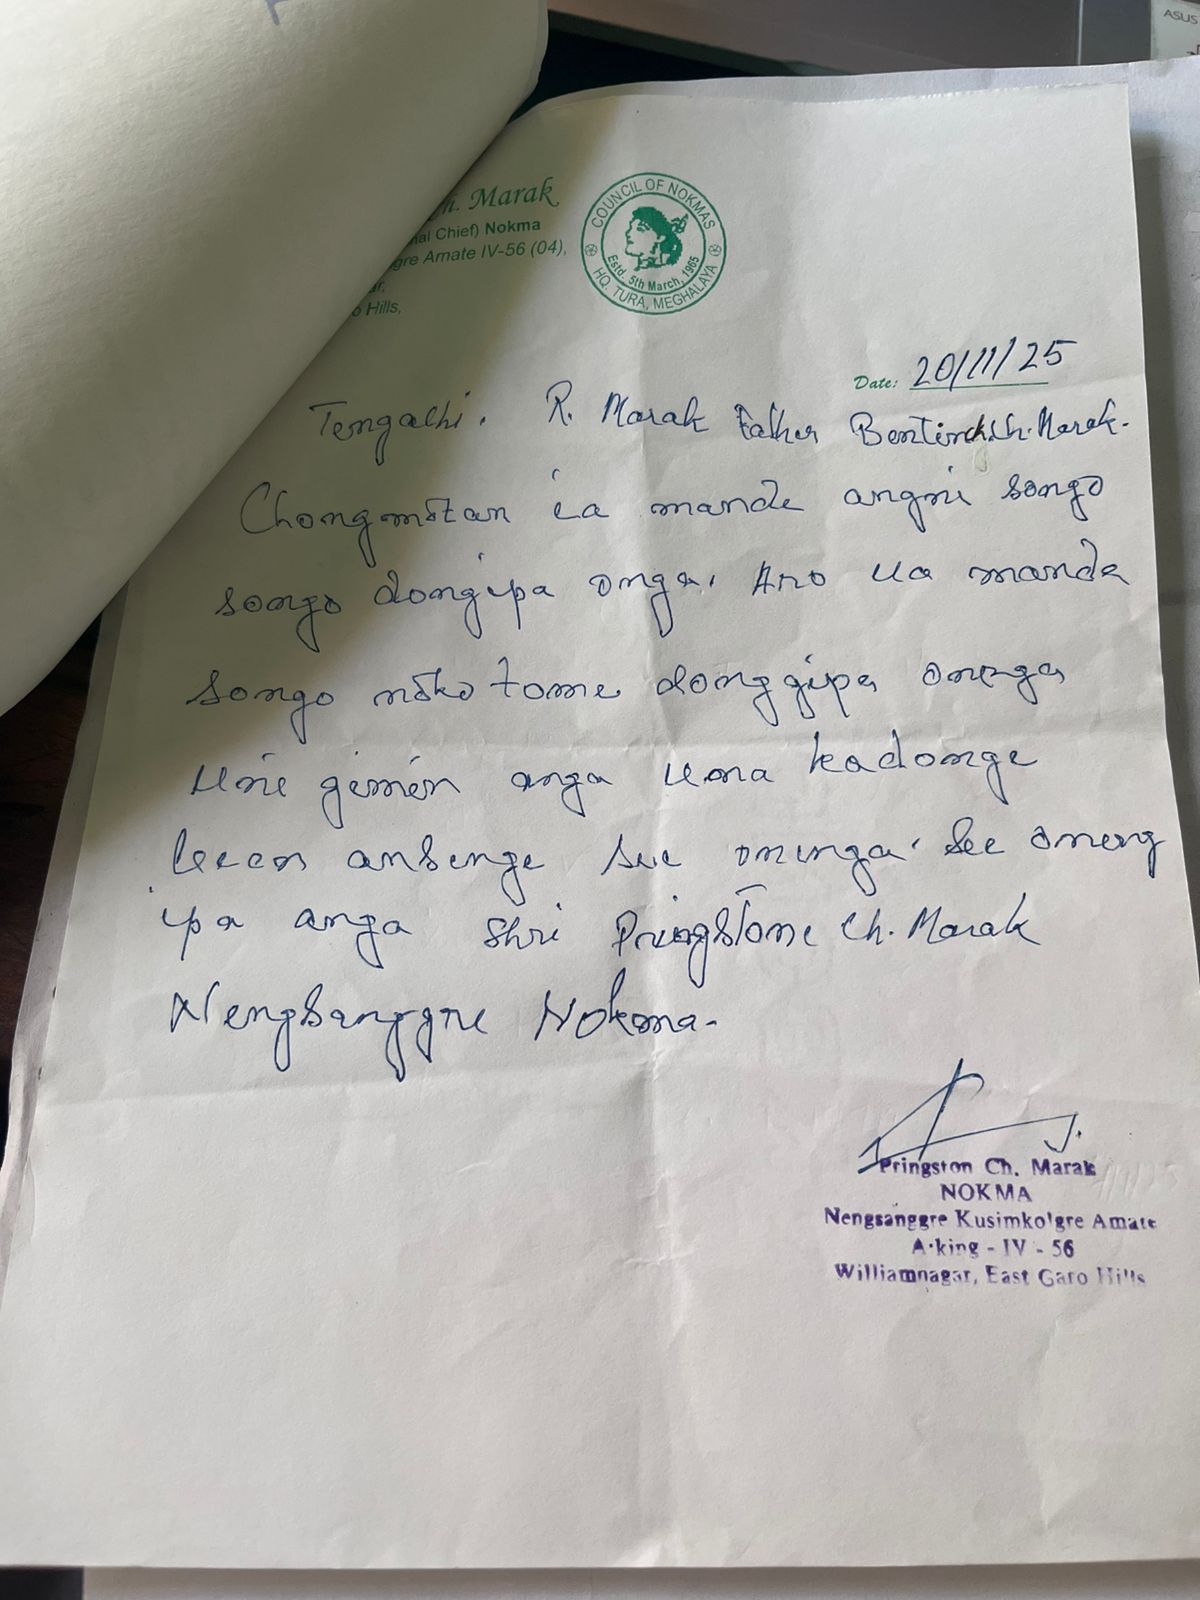 ASUS
Ch. Marak
nal Chief) Nokma
gre Amate IV-56 (04),
ar,
o Hills,
COUNCIL OF NOKMAS
Estd. 5th March, 1965
HQ. TURA, MEGHALAYA
Date: 20/11/25
Tengalhi. R. Marak Father Bentinck.Ch.Marak.
Chongmotan ia mande angni songo
songo dongipa onga. Aro ua manda
songo noko tome donggipa onga
Uni gimin anga una kadonge
ansenge see oninga. See oneng
ipa anga Shri Pringstone Ch. Marak
Nengsanggre Nokma.
Pringston Ch. Marak
NOKMA
Nengsanggre Kusimkolgre Amate
A·king - IV - 56
Williamnagar, East Garo Hills